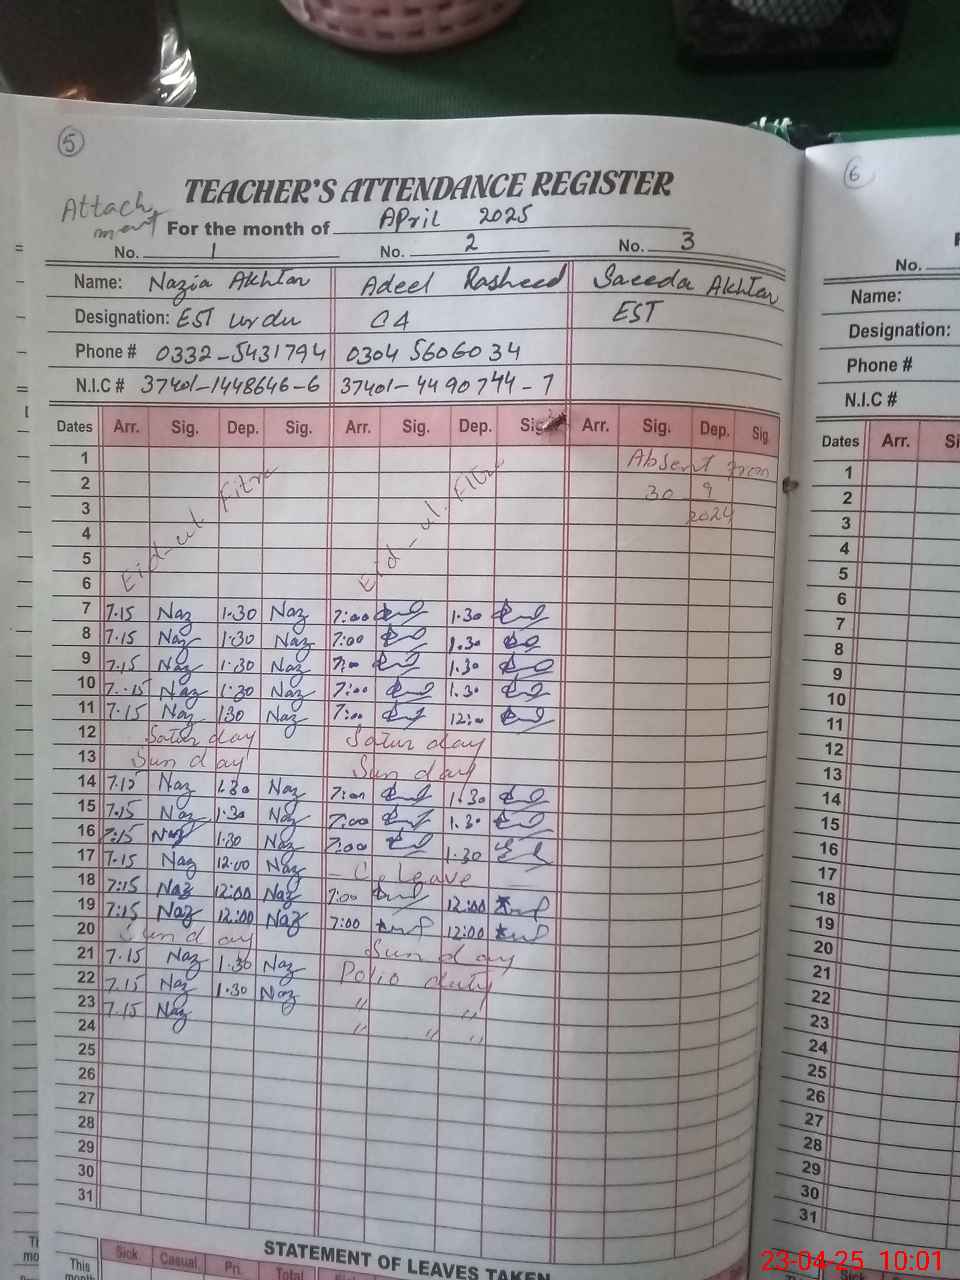 5
6
TEACHER'S ATTENDANCE REGISTER
Attach
ment
For the month of April 2025
No. 1 No. 2 No. 3
No.
Name: Nazia Akhtar Adeel Rasheed Saeeda Akhtar
Name:
Designation: EST urdu C4 EST
Designation:
Phone # 0332-5431794 0304 5606034
Phone #
N.I.C # 37401-1448646-6 37401-4490744-7
N.I.C #
Dates Arr. Sig. Dep. Sig. Arr. Sig. Dep. Sig. Arr. Sig. Dep. Sig
Dates Arr. Si
1 Absent from
2 30 9
3 2024
4
5
6
Eid-ul Fitre Eid-ul. Fitre
7 7.15 Naz 1.30 Naz 7:00 1.30
8 7.15 Naz 1.30 Naz 7:00 1.30
9 7.15 Naz 1.30 Naz 7:00 1.30
10 7.15 Naz 1.30 Naz 7:00 1.30
11 7.15 Naz 130 Naz 7:00 12:00
12 Saturday Saturday
13 Sunday Sunday
14 7.15 Naz 1.30 Naz 7:00 1.30
15 7.15 Naz 1.30 Naz 7:00 1.30
16 7:15 Naz 1.30 Naz 7:00 1.30
17 7.15 Naz 12:00 Naz - C. Leave
18 7:15 Naz 12:00 Naz 7:00 12:00
19 7:15 Naz 12:00 Naz 7:00 12:00
20 Sunday Sunday
21 7.15 Naz 1.30 Naz Polio duty
22 7.15 Naz 1.30 Naz " "
23 7.15 Naz " " "
24
25
26
27
28
29
30
31
1
2
3
4
5
6
7
8
9
10
11
12
13
14
15
16
17
18
19
20
21
22
23
24
25
26
27
28
29
30
31
STATEMENT OF LEAVES TAKEN
This
month
Sick Casual Pri. Total
23-04-25 10:01